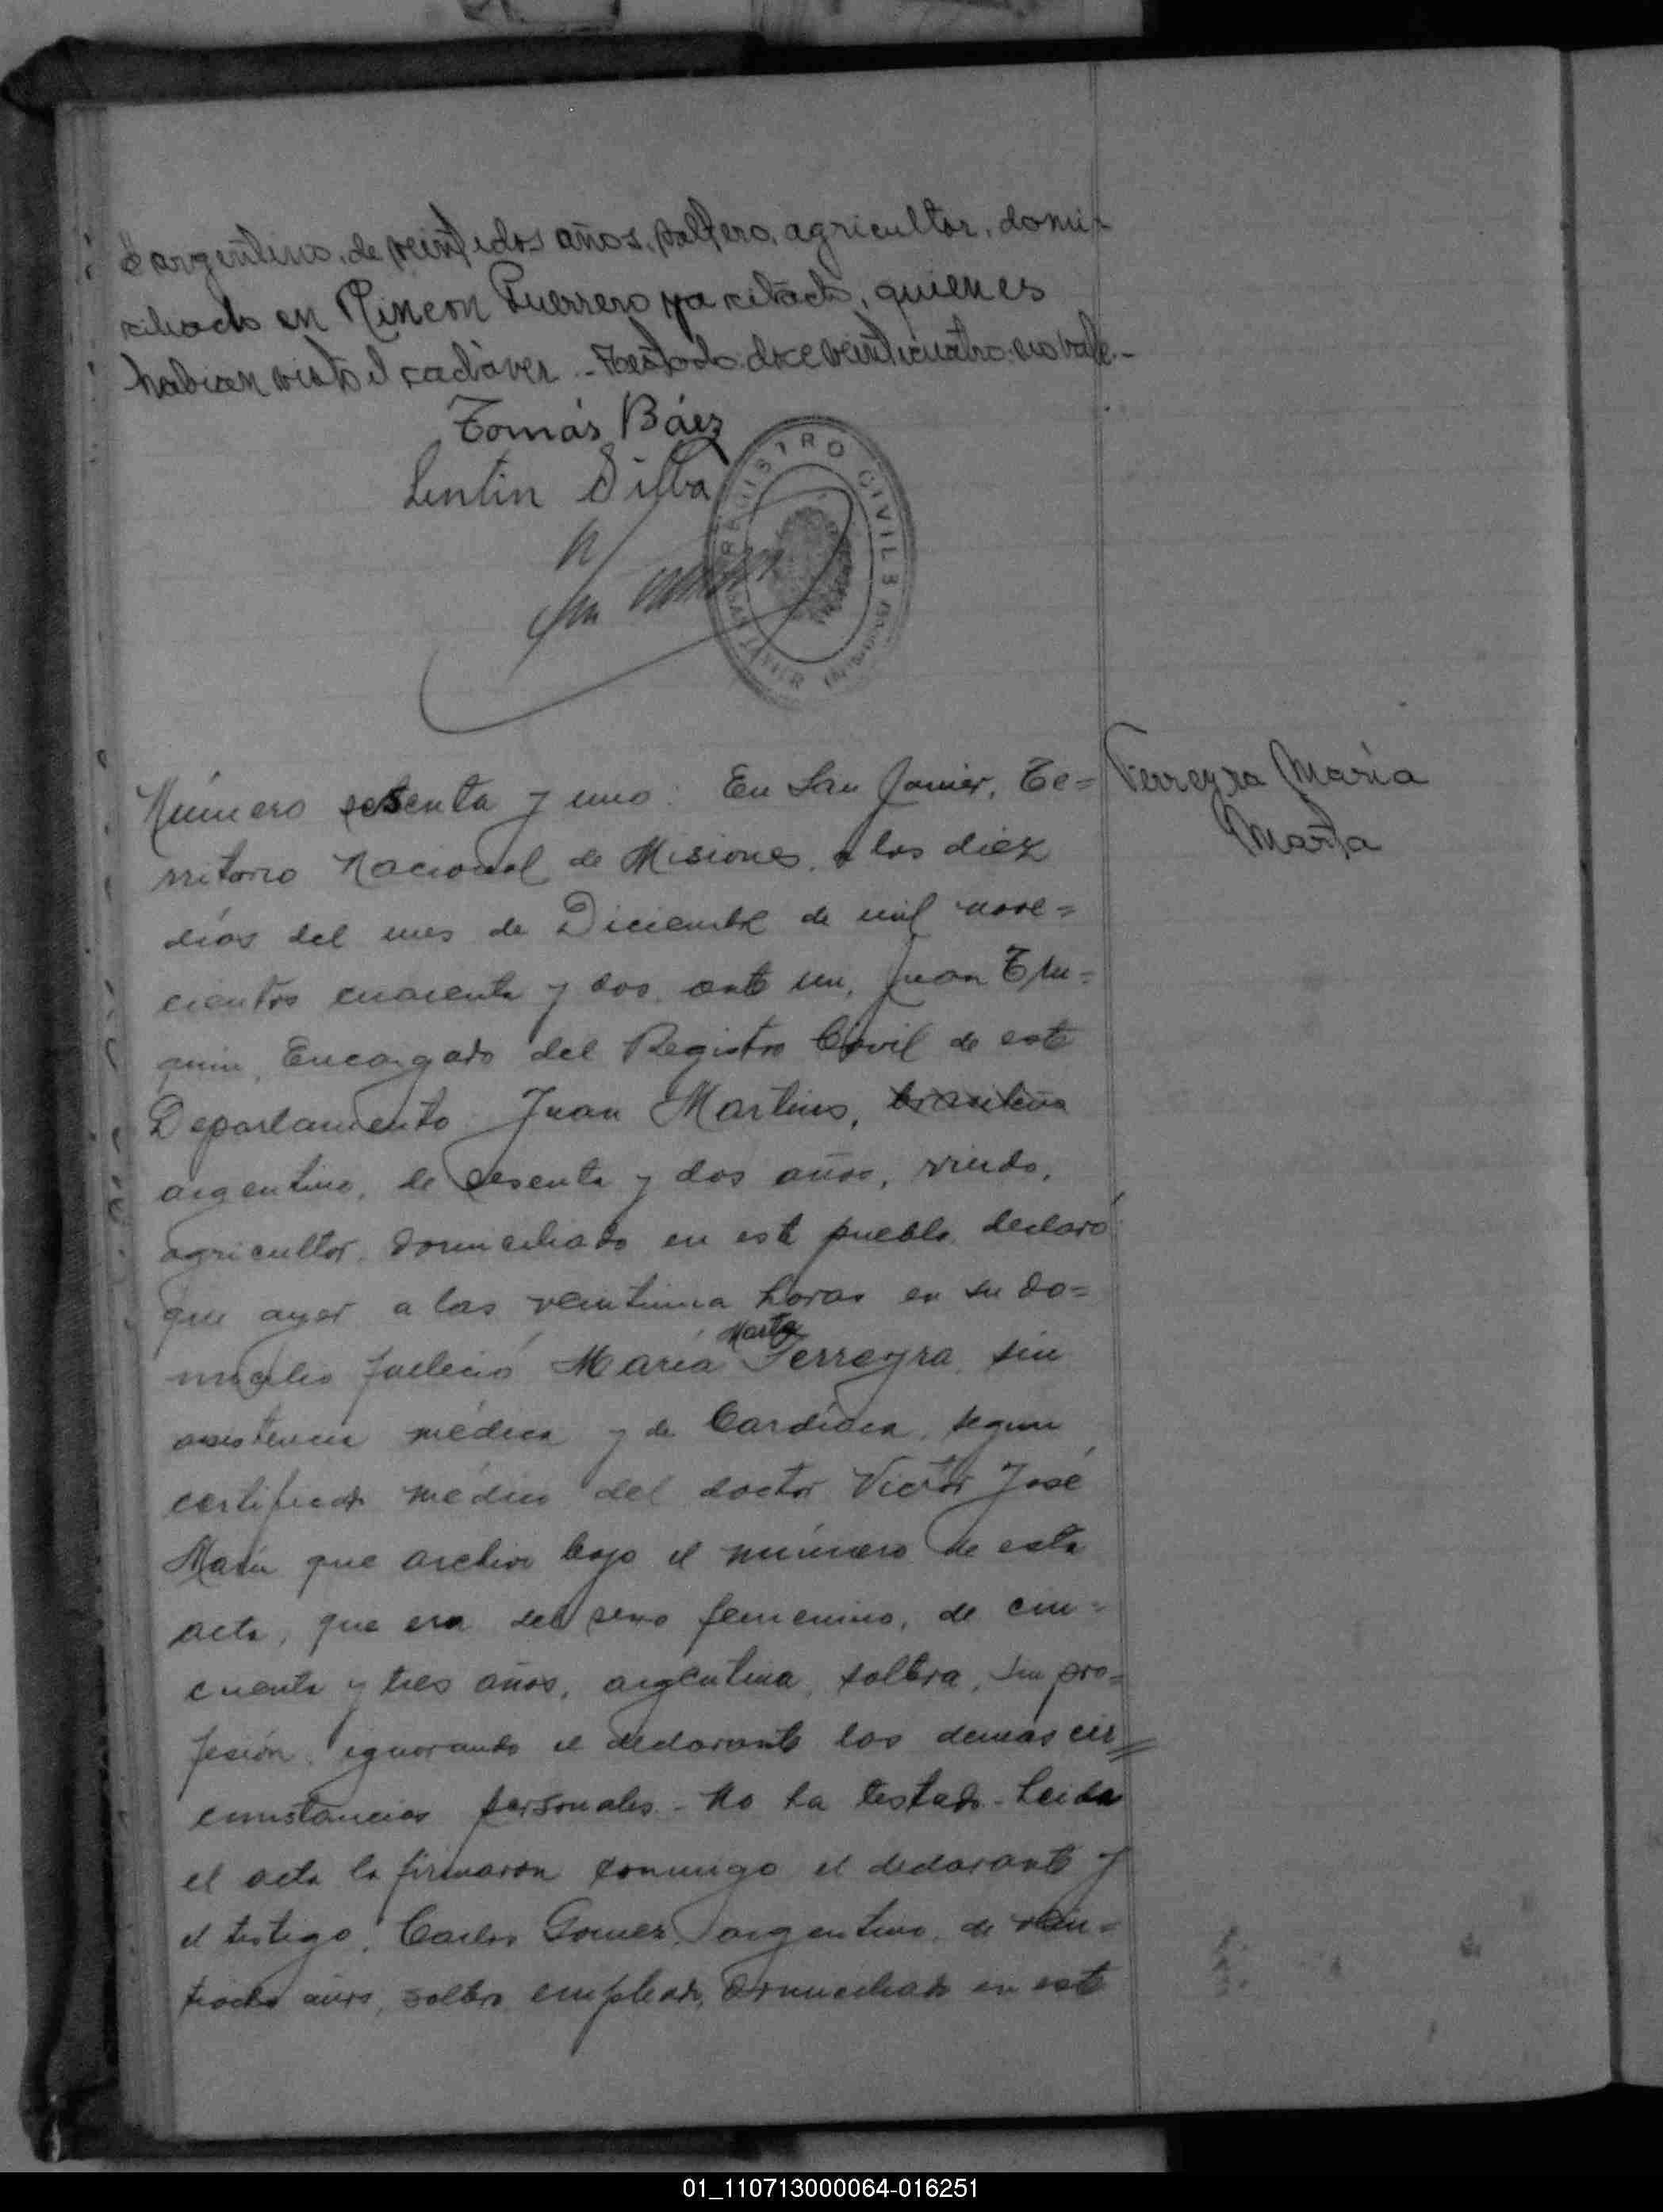 argentino, de veintidos años, soltero, agricultor, domi-
ciliado en Rincon Guerrero ya citado, quienes
habian visto el cadáver.- Testado: doce veinticuatro: no vale.-
Tomás Báez
Lentin Silva
REGISTRO CIVIL
SAN JAVIER (MISIONES)
Número sesenta y uno: En San Javier, Te=
Ferreyra María
Marta
rritorio Nacional de Misiones, a los diez
dias del mes de Diciembre de mil nove=
cientos cuarenta y dos, ante mi, Juan
Encargado del Registro Civil de este
Departamento Juan Martins, brasileño
argentino, de sesenta y dos años, viudo,
agricultor domiciliado en este pueblo, declaró:
que ayer a las veintiuna horas en su do=
micilio falleció María Marta Ferreyra, sin
asistencia médica y de Cardíaca, segun
certificado médico del doctor Victor José
Marín que archivo bajo el número de esta
acta, que era del sexo femenino, de cin=
cuenta y tres años, argentina, soltera, sin pro=
fesión, ignorando el declarante las demás cir=
cunstancias personales.- No ha testado.- Leida
el acta la firmaron conmigo el declarante y
el testigo, Carlos Gomez, argentino, de vein=
tiocho años, soltero, empleado, domiciliado en este
01_110713000064-016251